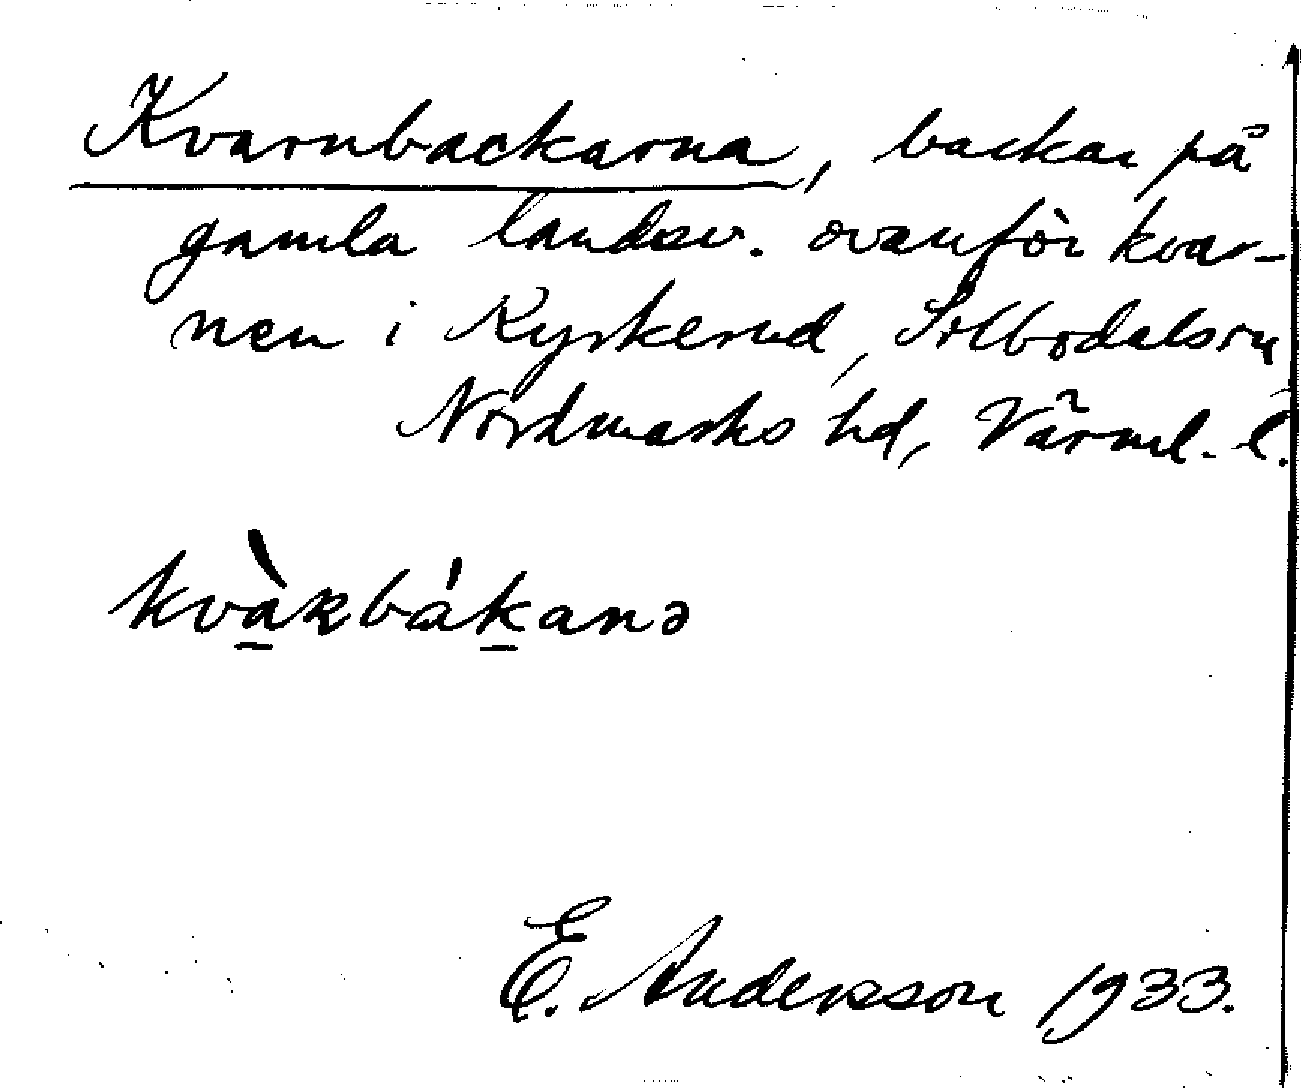 Kvarnbackarna, backar på
gamla landsv. ovanför kvar-
nen i Kyrkerud, Sillbodals sn
Nordmarks hd, Värml. l.
kvàʀbákanə
E. Andersson 1933.